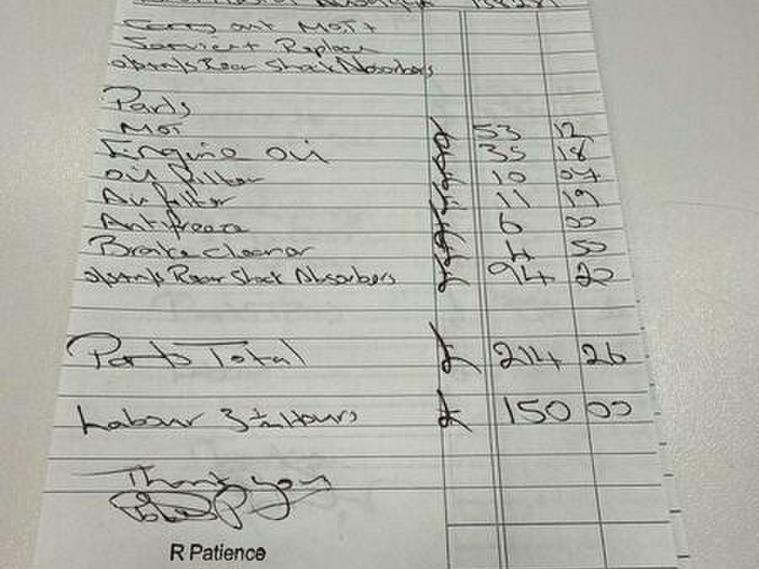 Carry out MOT +
Service + Replace
o/s + n/s Rear Shock Absorbers
Parts
MOT £ 53 12
Engine Oil £ 35 18
Oil filter £ 10 07
Air filter £ 11 19
Antifreeze £ 6 00
Brake cleaner £ 4 50
o/s + n/s Rear Shock Absorbers £ 94 20
Parts Total £ 214 26
Labour 3 ½ Hours £ 150 00
Thank you
R Patience